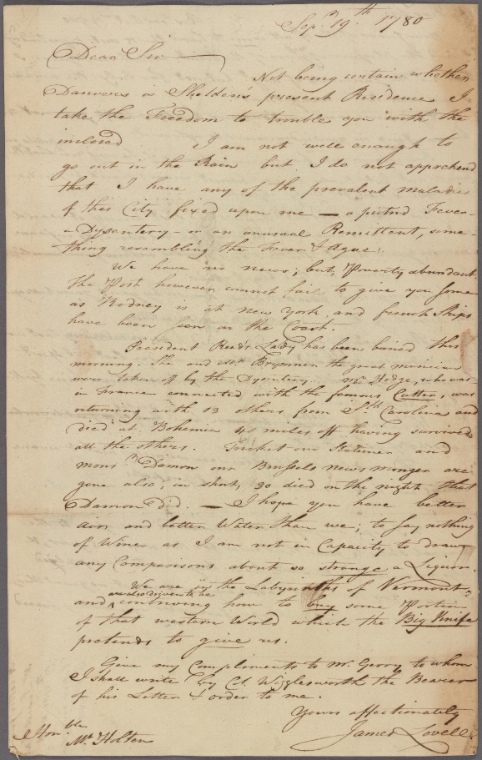 Sepr. 19th. 1780
Dear Sir
Not being certain whether
Danvers or Sheldon's present Residence I
take the Freedom to trouble you with the
inclosed I am not well enough to
go out in the Rain but I do not apprehend
that I have any of the prevalent maladies
of this City fixed upon me — a putrid Fever
a Dysentery — or an unusual Remittent, some-
thing resembling the Fever & Ague.
We have no news; but, Poverty abundant
the Post however cannot fail to give you some
as Rodney is at New York and french Ships
have been seen on the Coast.
President Reed's Lady has been buried this
morning. She and Mr. the great musician
were taken off by the Dysentery. Mr. Hodge, who was
in France connected with the famous Cutter, was
returning with 13 others from Sth. Carolina and
died at Bohemia 40 miles off having survived
all the others. our Statuer and
monsr. Damon our Brussels newsmonger are
gone also; in short, 30 died on the night that
Damon did. — I hope you have better
air and better Water than we; to say nothing
of Wine as I am not in Capacity to draw
any Comparisons about so strange a Liquor.
We are in the Labyrinths of Vermont
and contriving how to buy some Portion
of that western World which the Big Knife
pretends to give us.
Give my Compliments to Mr. Gerry to whom
I shall write by Col. Wigglesworth the Bearer
of his Letter & order to me.
Yours affectionately
James Lovell
Honble.
Mr. Holten